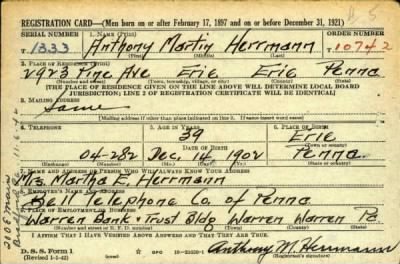 REGISTRATION CARD—(Men born on or after February 17, 1897 and on or before December 31, 1921)
SERIAL NUMBER 1. NAME (Print) ORDER NUMBER
1333 Anthony Martin Herrmann 10742
(First) (Middle) (Last)
2. PLACE OF RESIDENCE (Print)
2923 Pine Ave Erie Erie Penna
(Number and street) (Town, township, village, or city) (County) (State)
[THE PLACE OF RESIDENCE GIVEN ON THE LINE ABOVE WILL DETERMINE LOCAL BOARD
JURISDICTION; LINE 2 OF REGISTRATION CERTIFICATE WILL BE IDENTICAL]
3. MAILING ADDRESS
Same
[Mailing address if other than place indicated on line 2. If same insert word same]
4. TELEPHONE 5. AGE IN YEARS 6. PLACE OF BIRTH
39 Erie
DATE OF BIRTH (Town or county)
04-282 Dec. 14 1902 Penna.
(Exchange) (Number) (Mo.) (Day) (Yr.) (State or country)
7. NAME AND ADDRESS OF PERSON WHO WILL ALWAYS KNOW YOUR ADDRESS
Mrs Martha E. Herrmann
8. EMPLOYER'S NAME AND ADDRESS
Bell Telephone Co. of Penna
9. PLACE OF EMPLOYMENT OR BUSINESS
Warren Bank + Trust Bldg Warren Warren Pa.
(Number and street or R. F. D. number) (Town) (County) (State)
I AFFIRM THAT I HAVE VERIFIED ABOVE ANSWERS AND THAT THEY ARE TRUE.
D. S. S. Form 1
(Revised 1-1-42) GPO Anthony M. Herrmann